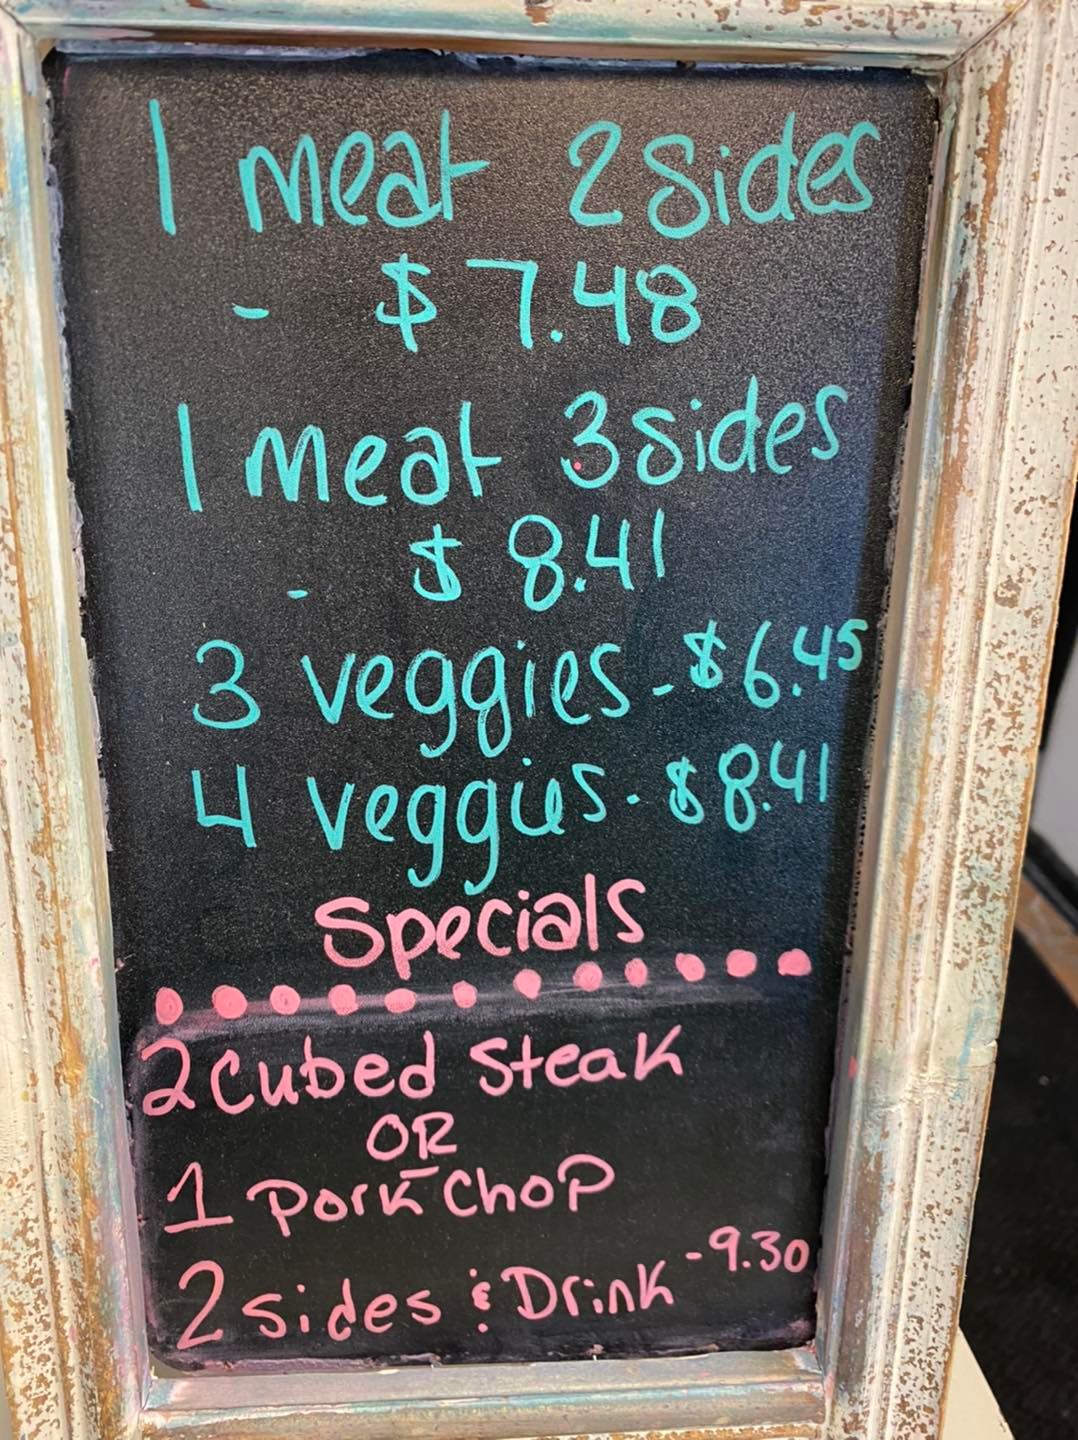 1 meat 2 sides
- $7.48
1 meat 3 sides
- $8.41
3 veggies - $6.45
4 veggies - $8.41
Specials
2 cubed Steak
OR
1 Pork Chop
2 sides & Drink - 9.30